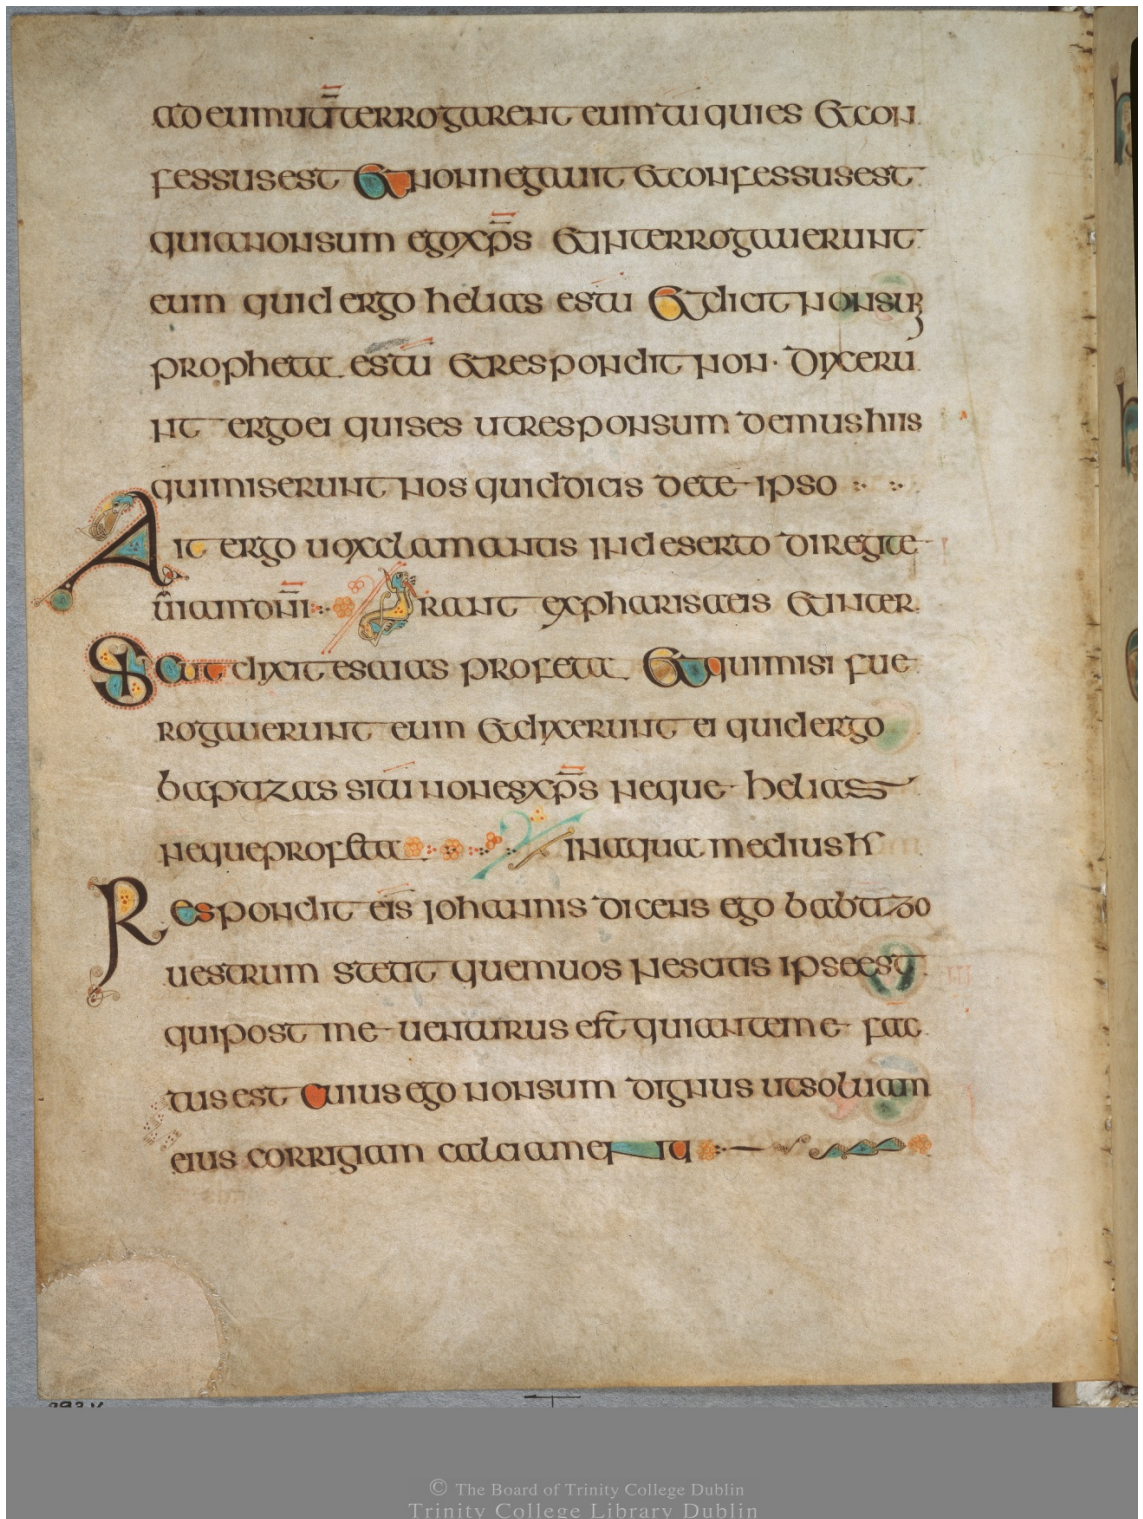 ad eum ut īterrogarent eum tu quies et con
fessus est et non negauit et confessus est
quia non sum ego xp̄s et interrogauerunt
eum quid ergo helias es tu et dicit non sum
propheta es tu et respondit non · dixeru
nt ergo ei quis es ut responsum demus hiis
qui miserunt nos quid dicis de te ipso
Ait ergo uox clamantis in deserto dirigite
uiam dn̄i Erant ex phariseis et inter
Sicut dixit esaias profeta et qui misi fue
rogauerunt eum et dixerunt ei quid ergo
baptizas si tu non es xp̄s neque helias
neque profeta in aqua medius h
Respondit eis iohannis dicens ego babtizo
uestrum stetit quem uos nescitis ipse est
qui post me uenturus est qui ante me fac
tus est cuius ego non sum dignus ut soluam
eius corrigiam calciamenti
293 V
© The Board of Trinity College Dublin
Trinity College Library Dublin